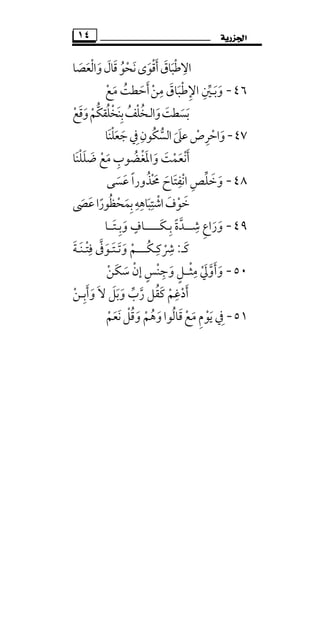 الجزرية ١٤
الاِطْبَاقَ أَقْوَى نَحْوُ قَالَ وَالْعَصَا
٤٦ - وَبَيِّنِ الإِطْبَاقَ مِنْ أَحَطتُ مَعْ
بَسَطتَ وَالْخُلْفُ بِنَخْلُقكُّمْ وَقَعْ
٤٧ - وَاحْرِصْ عَلَى السُّكُونِ فِي جَعَلْنَا
أَنْعَمْتَ وَالْمَغْضُوبِ مَعْ ضَلَلْنَا
٤٨ - وَخَلِّصِ انْفِتَاحَ مَحْذُوراً عَسَى
خَوْفَ اشْتِبَاهِهِ بِمَحْظُورًا عَصَى
٤٩ - وَرَاعِ شِــدَّةً بِـكَـــافٍ وَبِـتَــا
كَـ: شِرْكِـكُــمْ وَتَـتَـوَفَّى فِـتْـنَـةَ
٥٠ - وَأَوَّلَيْ مِثْــلٍ وَجِنْسٍ إنْ سَكَنْ
أَدْغِمْ كَقُل رَّبِّ وَبَلَ لاَ وَأَبِــنْ
٥١ - فِي يَوْمِ مَعْ قَالُوا وَهُمْ وَقُلْ نَعَمْ